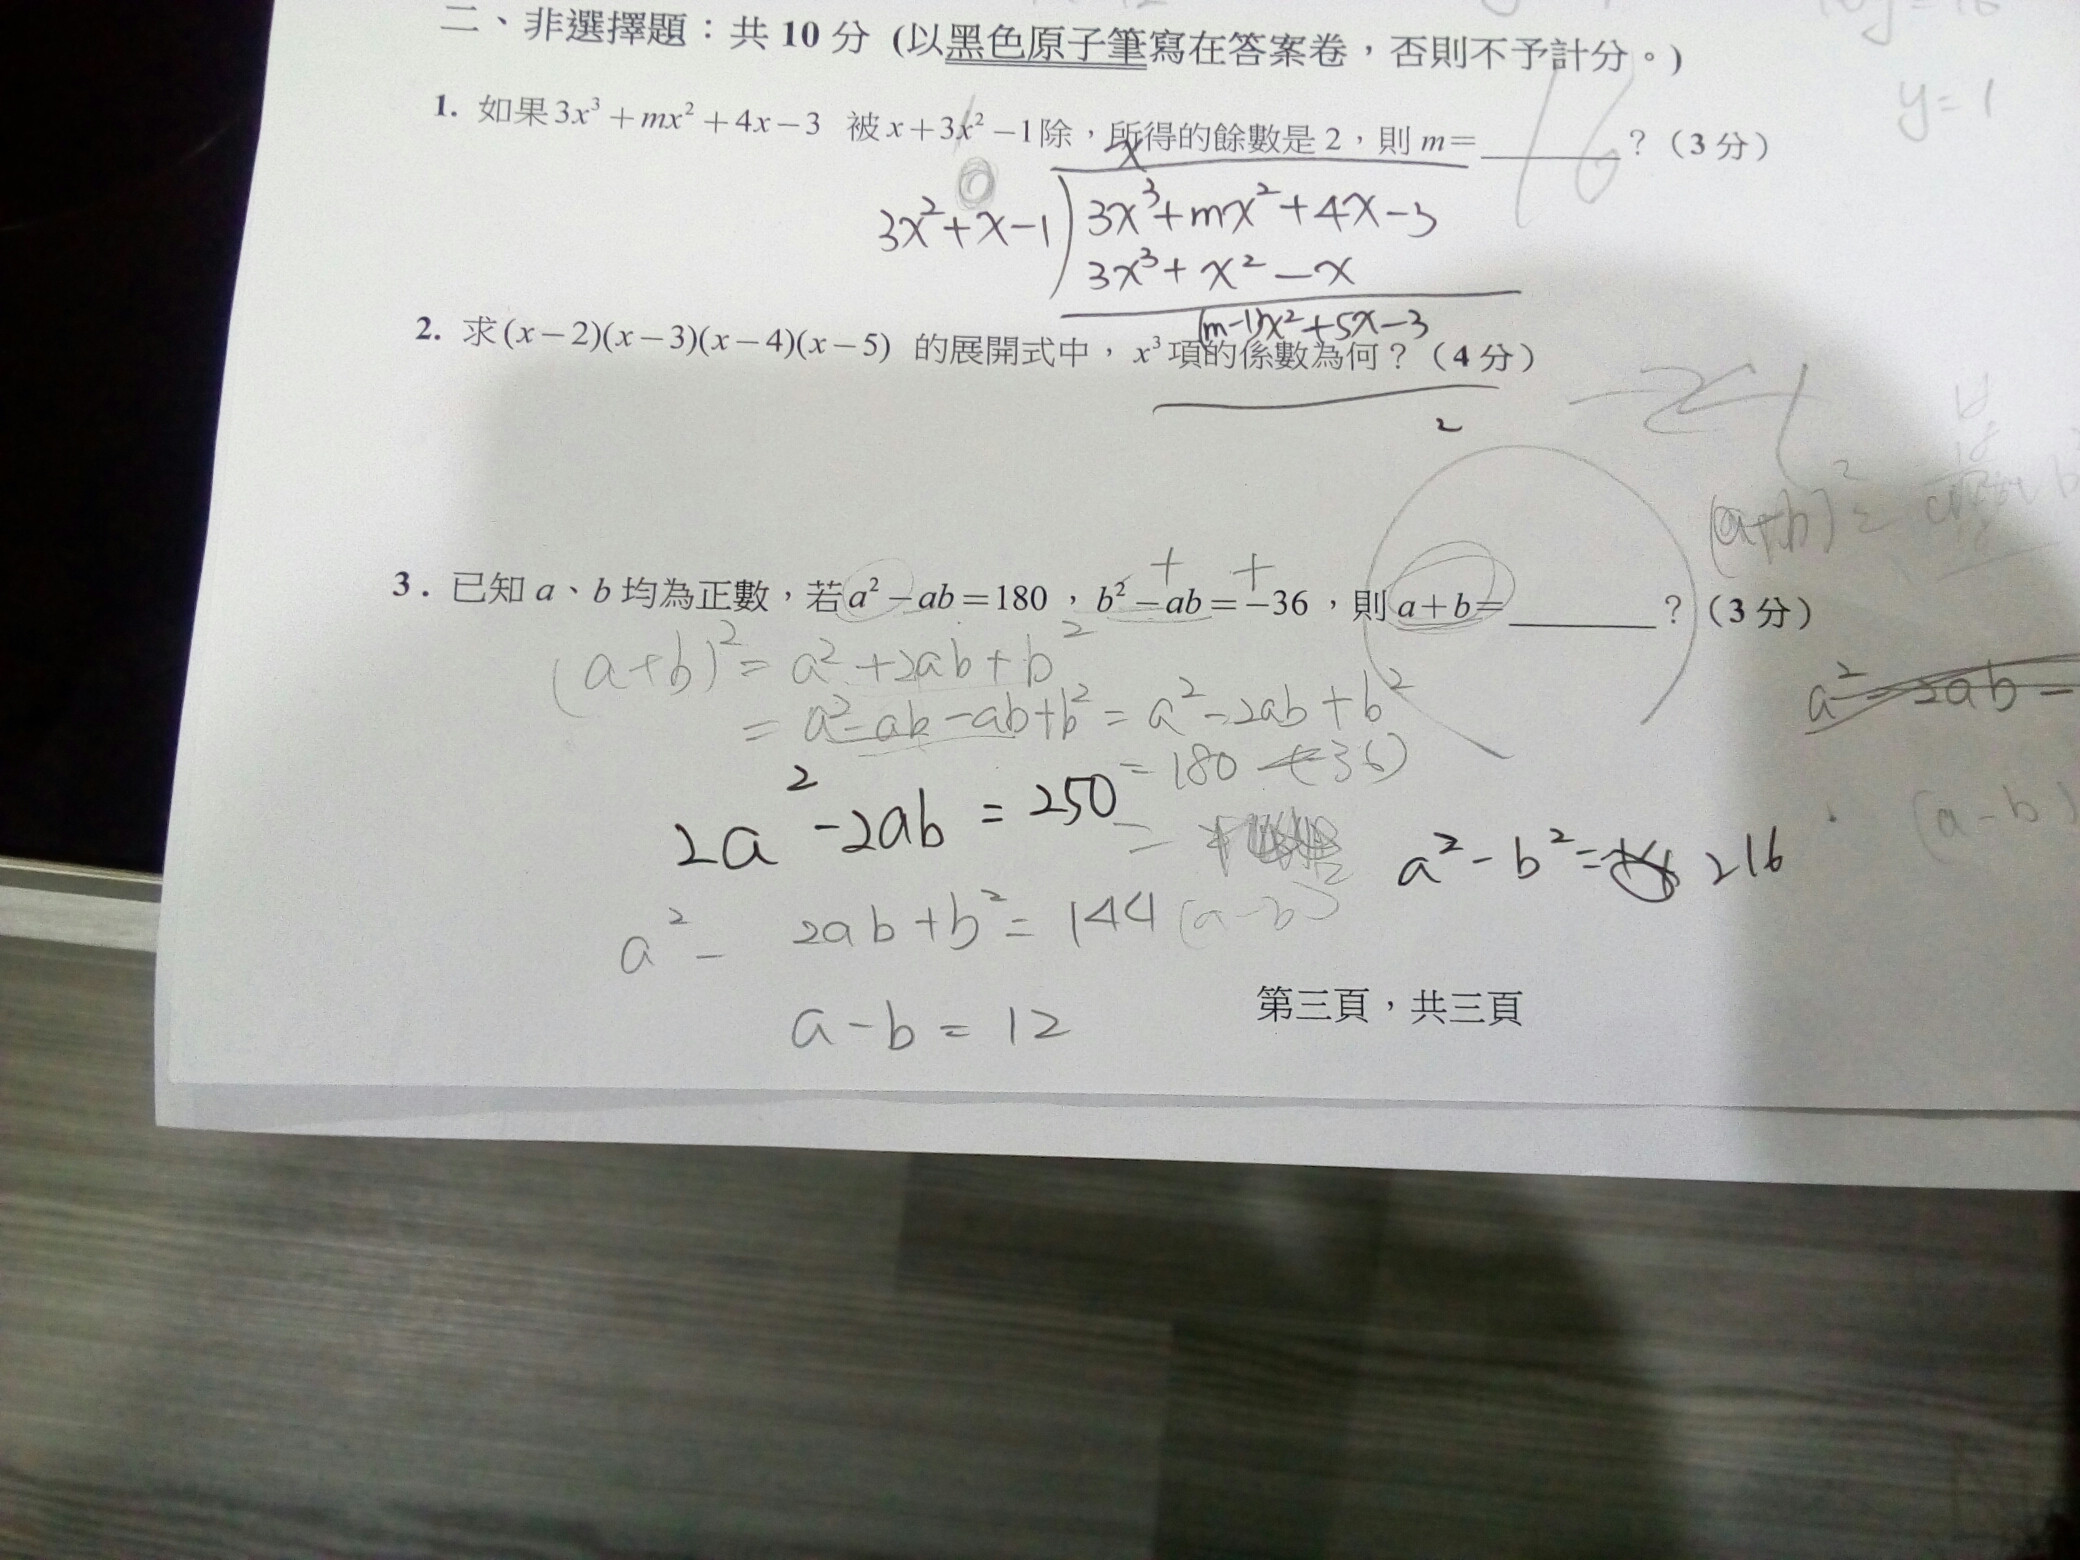 二、非選擇題：共 10 分 (以黑色原子筆寫在答案卷，否則不予計分。)
y=1
1. 如果 3x³+mx²+4x−3 被 x+3x²−1 除，所得的餘數是 2，則 m=______？（3 分）
16
x
3x²+x-1 3x³+mx²+4x-3
3x³+x²-x
(m-1)x²+5x-3
2. 求 (x−2)(x−3)(x−4)(x−5) 的展開式中，x³ 項的係數為何？（4 分）
2
(a+b)²=
+ +
3. 已知 a、b 均為正數，若 a²−ab=180，b²−ab=−36，則 a+b=______？（3 分）
(a+b)²=a²+2ab+b²
=a²-ab-ab+b²=a²-2ab+b²
a²-2ab=
=180-(-36)
2a²-2ab=250
a²-b²=216
(a-b)
a²-2ab+b²=144 (a-b)²
a-b=12
第三頁，共三頁